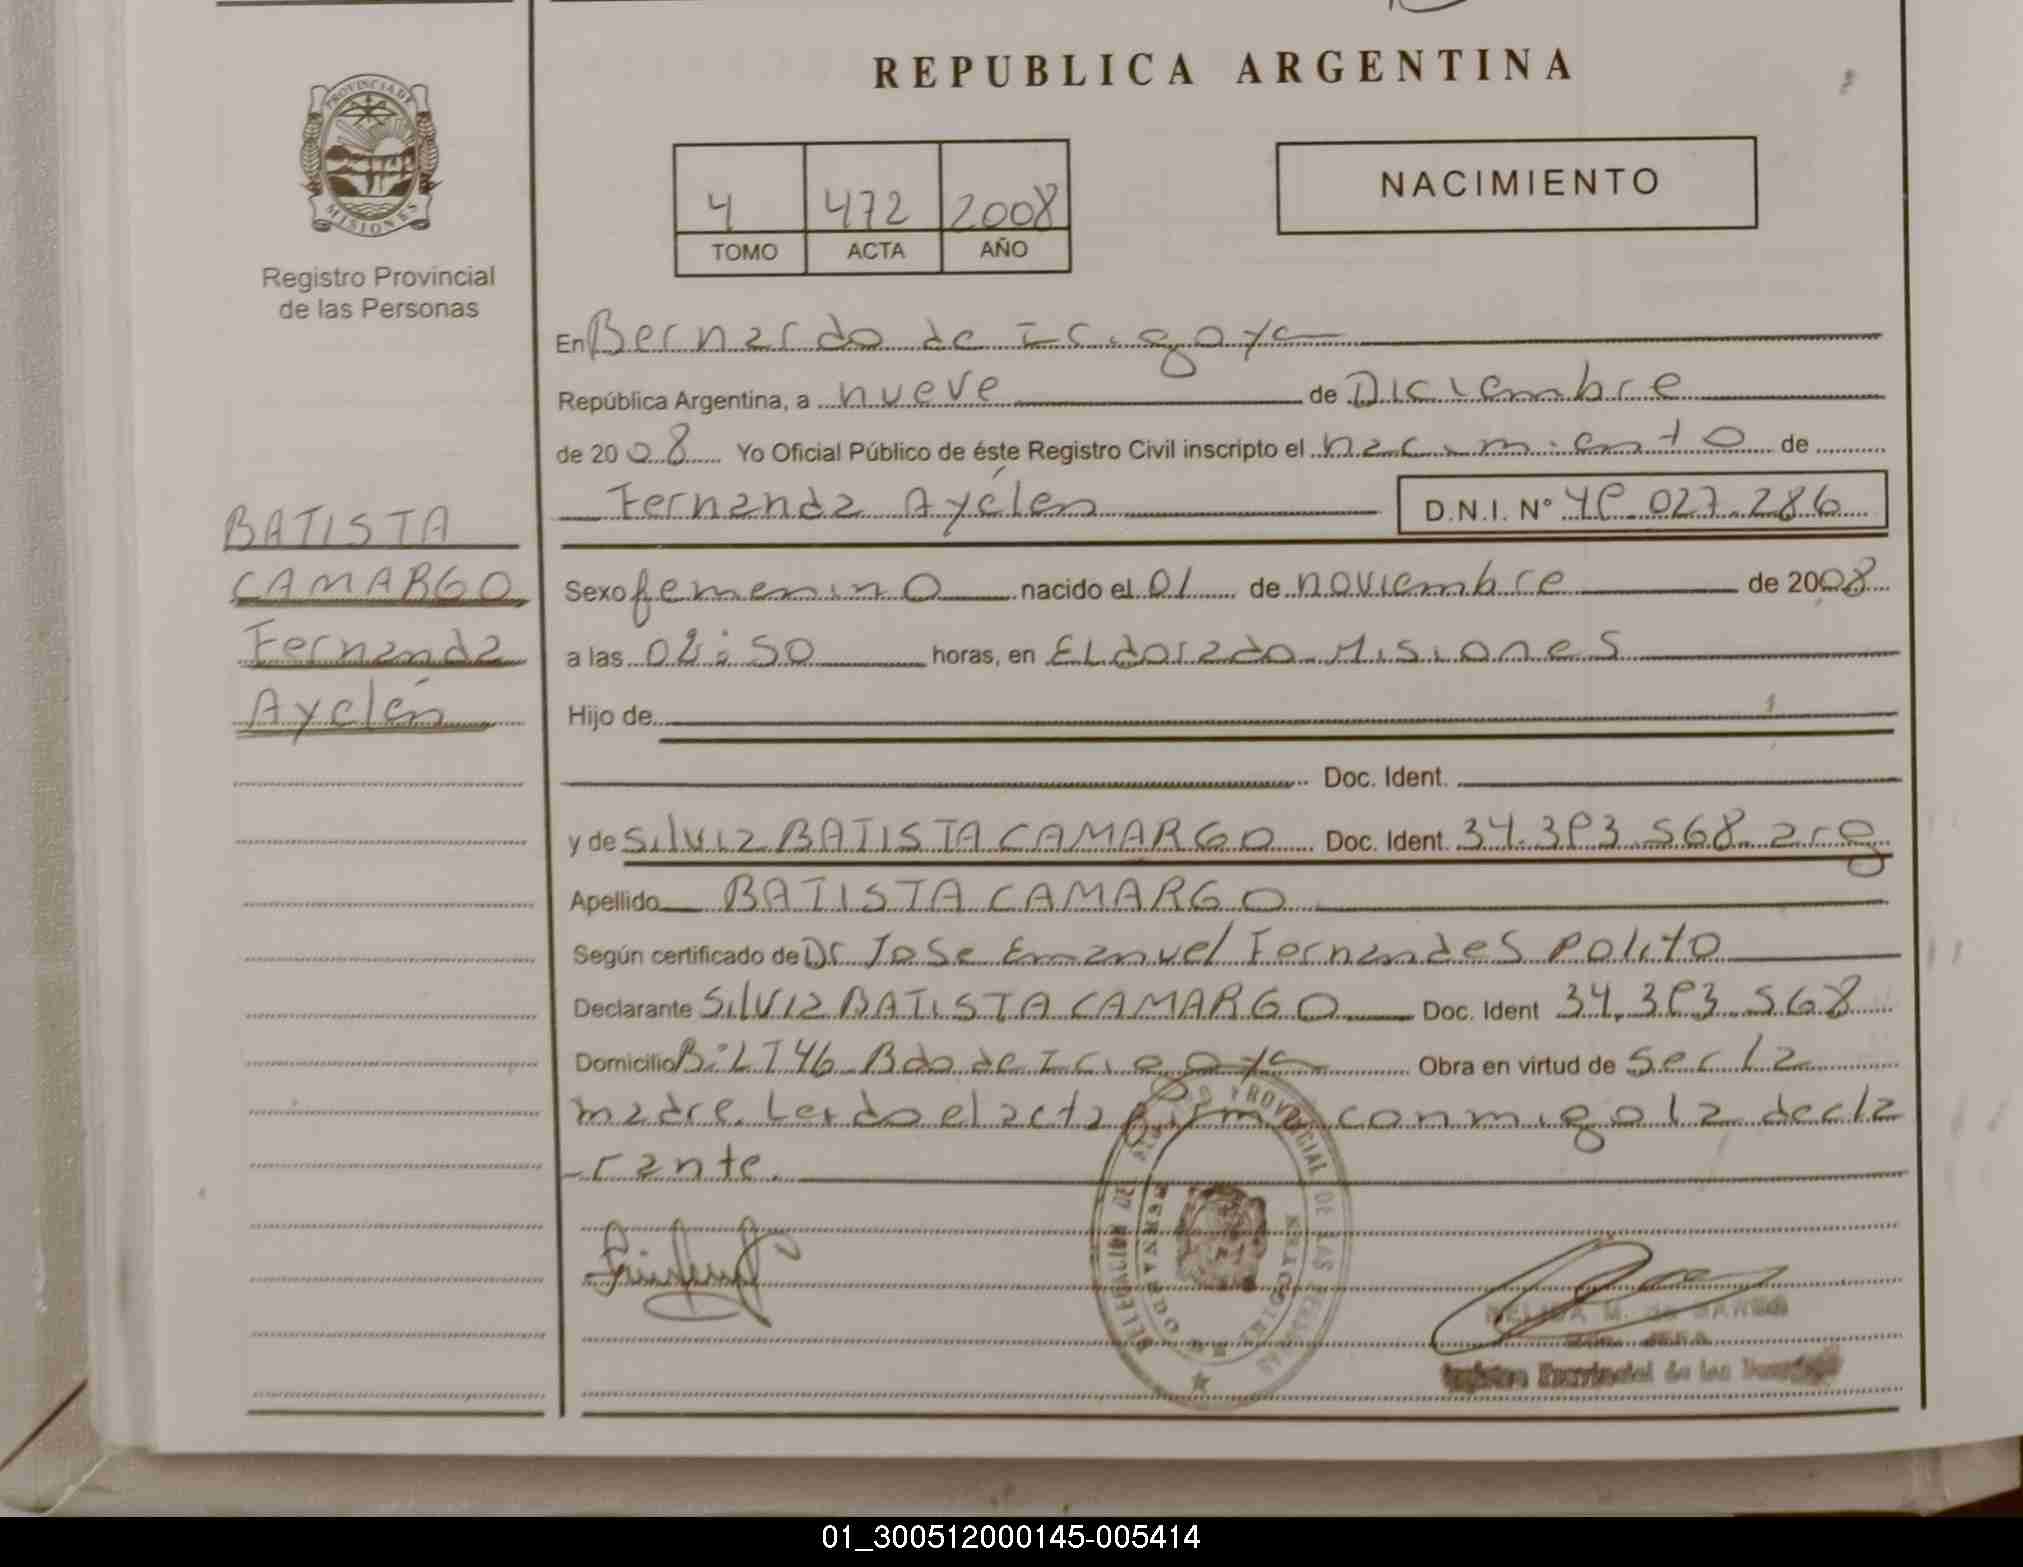 REPUBLICA ARGENTINA
PROVINCIA DE
MISIONES
Registro Provincial
de las Personas
4 472 2008
TOMO ACTA AÑO
NACIMIENTO
En Bernardo de Irigoye
República Argentina, a nueve de Diciembre
de 2008 Yo Oficial Público de éste Registro Civil inscripto el nacimiento de
Fernanda Ayélen D.N.I. Nº 49.027.286
BATISTA
CAMARGO
Fernanda
Ayelén
Sexo femenino nacido el 01 de noviembre de 2008
a las 02:50 horas, en Eldorado Misiones
Hijo de
Doc. Ident.
y de Silvia BATISTA CAMARGO Doc. Ident. 34.393.568 arg
Apellido BATISTA CAMARGO
Según certificado de Dr Jose Emanuel Fernandes Polito
Declarante Silvia BATISTA CAMARGO Doc. Ident 34.393.568
Domicilio Bdo de Irigoye Obra en virtud de Ser la
madre. Leido el acta firma conmigo la decla
-rante.
PROVINCIAL DE LAS
BERNARDO DE IRIGOYEN
Provincial de las
01_300512000145-005414